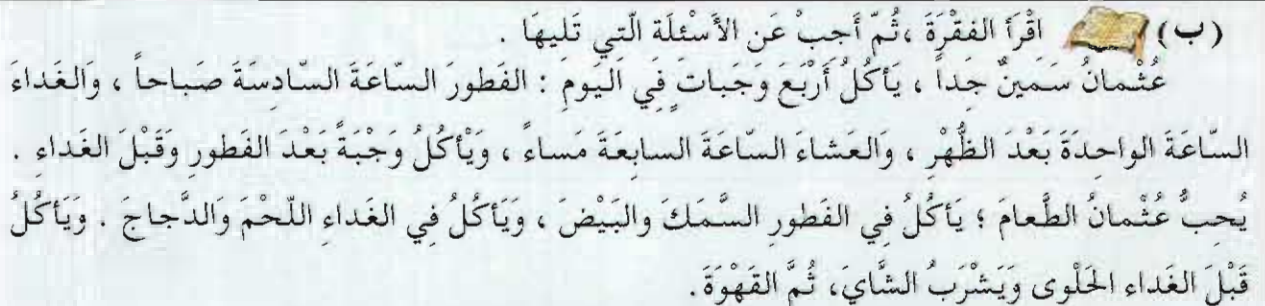 (ب) اقْرَأ الفقْرَةَ ،ثُمّ أَجِبْ عَن الأَسْئِلَة الّتِي تَليهَا .
عُثْمانُ سَمينٌ جَداً ، يَأكُلُ أَرْبَعَ وَجَباتٍ فِي اليَومَ : الفَطورَ السّاعَةَ السّادِسَةَ صَباحاً ، وَالغَداءَ
السّاعَةَ الواحِدَةَ بَعْدَ الظُّهْرِ ، وَالعَشاءَ السّاعَةَ السابِعَةَ مَساءً ، وَيَْأكُلُ وَجْبَةً بَعْدَ الفَطورِ وَقَبْلَ الغَداءِ .
يُحِبُّ عُثْمانُ الطَّعامَ ؛ يَأكُلُ فِي الفَطورِ السَّمَكَ والبَيْضَ ، وَيَأكُلُ فِي الغَداءِ اللّحْمَ وَالدَّجاجَ . وَيَأكُلُ
قَبْلَ الغَداءِ الحَلْوى وَيَشْرَبُ الشَّايَ، ثُمَّ القَهْوَةَ .